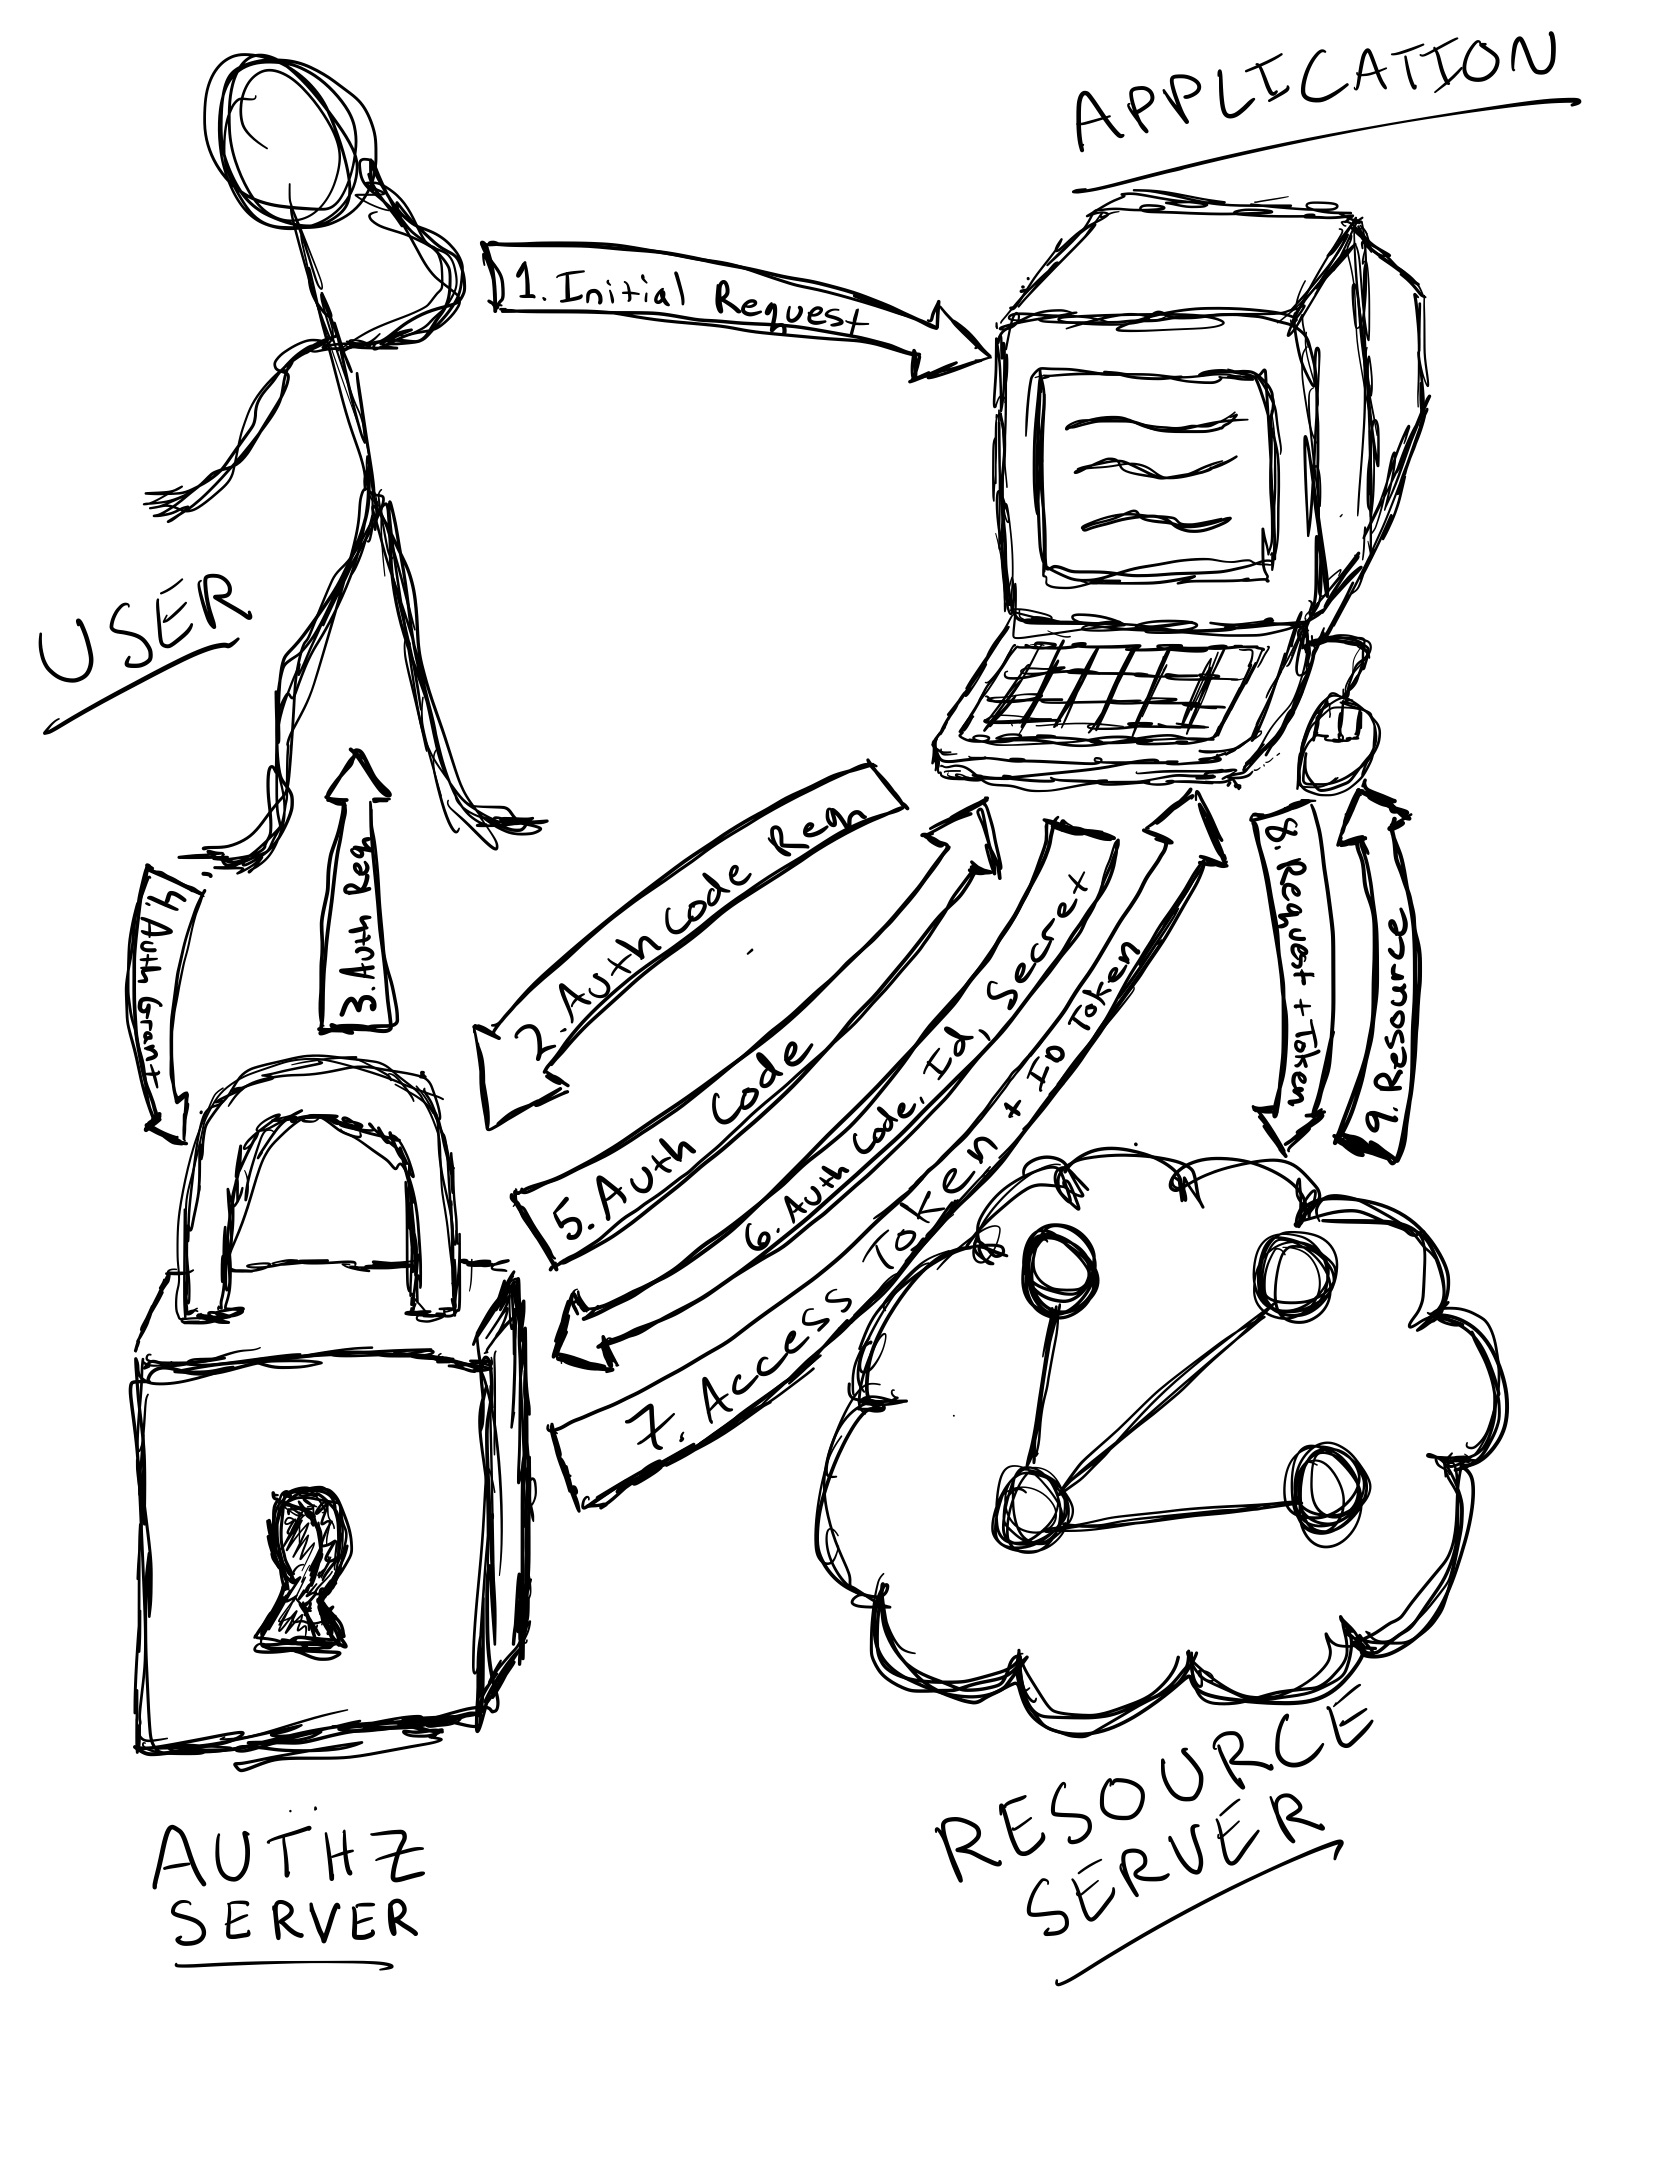 APPLICATION
1. Initial Request
USER
2. Auth Code Reqn
3. Auth Req
4. Auth Grant
5. Auth Code
6. Auth Code, Id, Secret
7. Access Token + ID Token
8. Request + Token
9. Resource
AUTHZ
SERVER
RESOURCE
SERVER